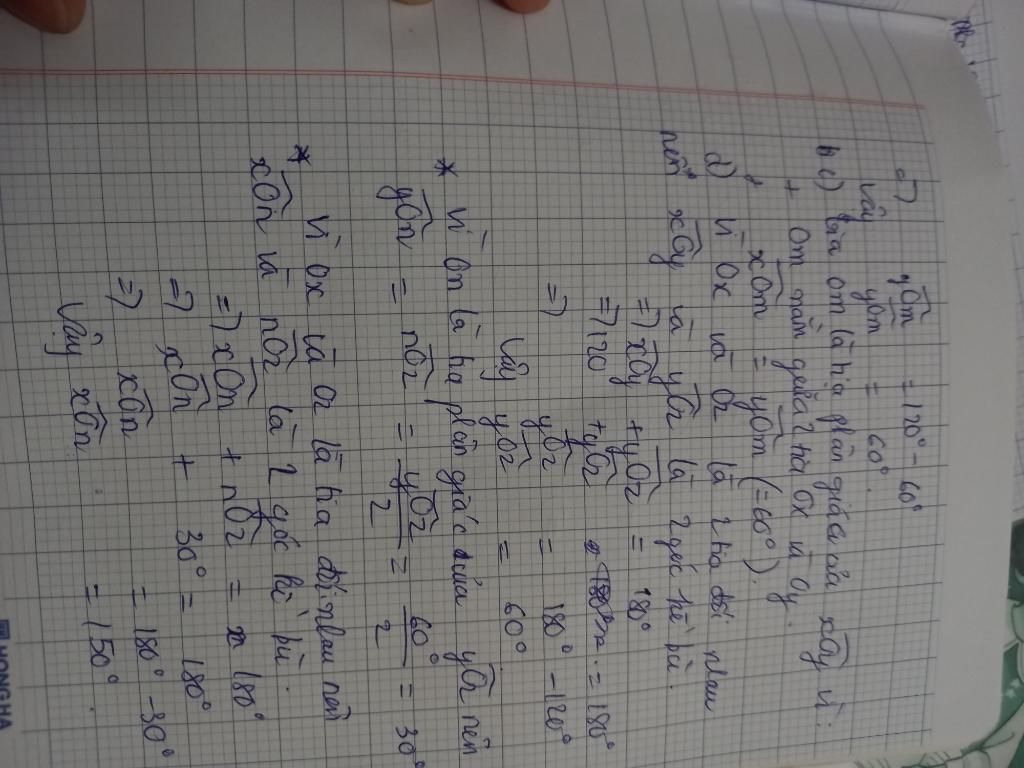 yOm = 120° - 60°
Vậy yOm = 60°.
c) tia Om là tia phân giác của xOy vì:
+ Om nằm giữa 2 tia Ox và Oy.
+ xOm = yOm (= 60°).
d) Vì Ox và Oz là 2 tia đối nhau
nên xOy và yOz là 2 góc kề bù.
=> xOy + yOz = 180°
=> 120 + yOz = 180°
=> yOz = 180° - 120°
Vậy yOz = 60°
* Vì On là tia phân giác của yOz nên
yOn = nOz = yOz/2 = 60°/2 = 30°
* Vì Ox và Oz là tia đối nhau nên
xOn và nOz là 2 góc kề bù.
=> xOn + nOz = 180°
=> xOn + 30° = 180°
=> xOn = 180° - 30°
Vậy xOn = 150°.
HONG HA